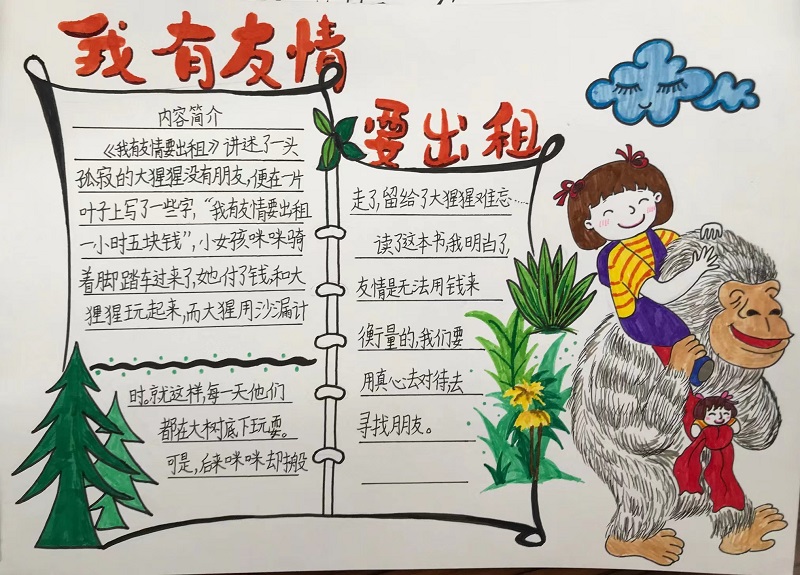 我有友情
要出租
内容简介
《我有友情要出租》讲述了一头
孤寂的大猩猩没有朋友,便在一片
叶子上写了一些字,“我有友情要出租
一小时五块钱”,小女孩咪咪骑
着脚踏车过来了,她付了钱,和大
猩猩玩起来,而大猩用沙漏计
时。就这样,每一天他们
都在大树底下玩耍。
可是,后来咪咪却搬
走了,留给了大猩猩难忘……
读了这本书,我明白了,
友情是无法用钱来
衡量的,我们要
用真心去对待去
寻找朋友。